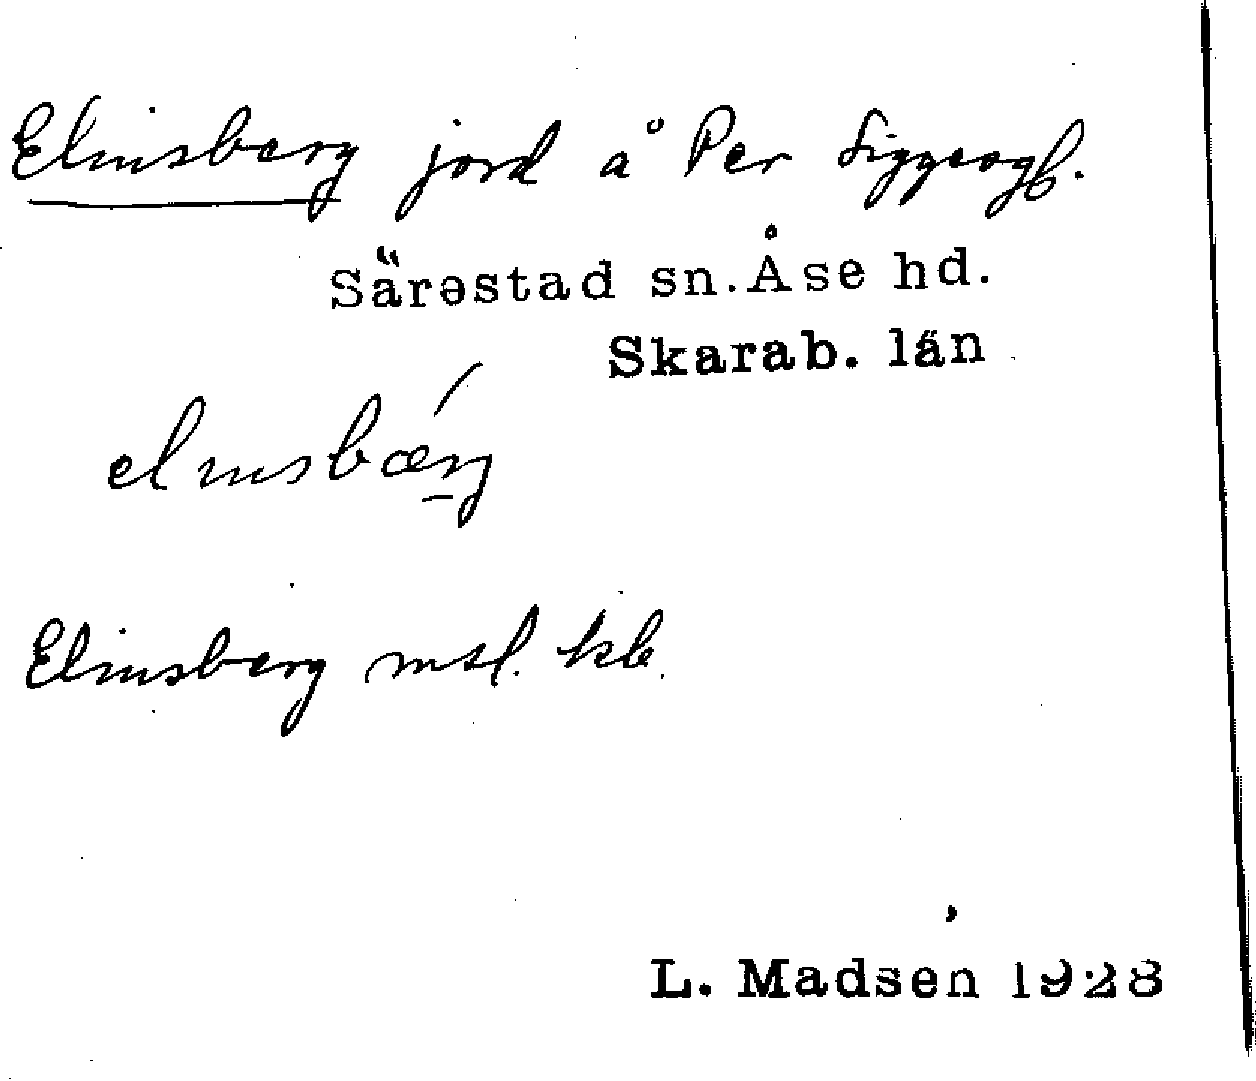 Elinsberg jord å Per Siggesgb.
Särəstad sn. Åse hd.
Skarab. län
elinsbærg
Elinsberg msl. kb.
L. Madsén 1928